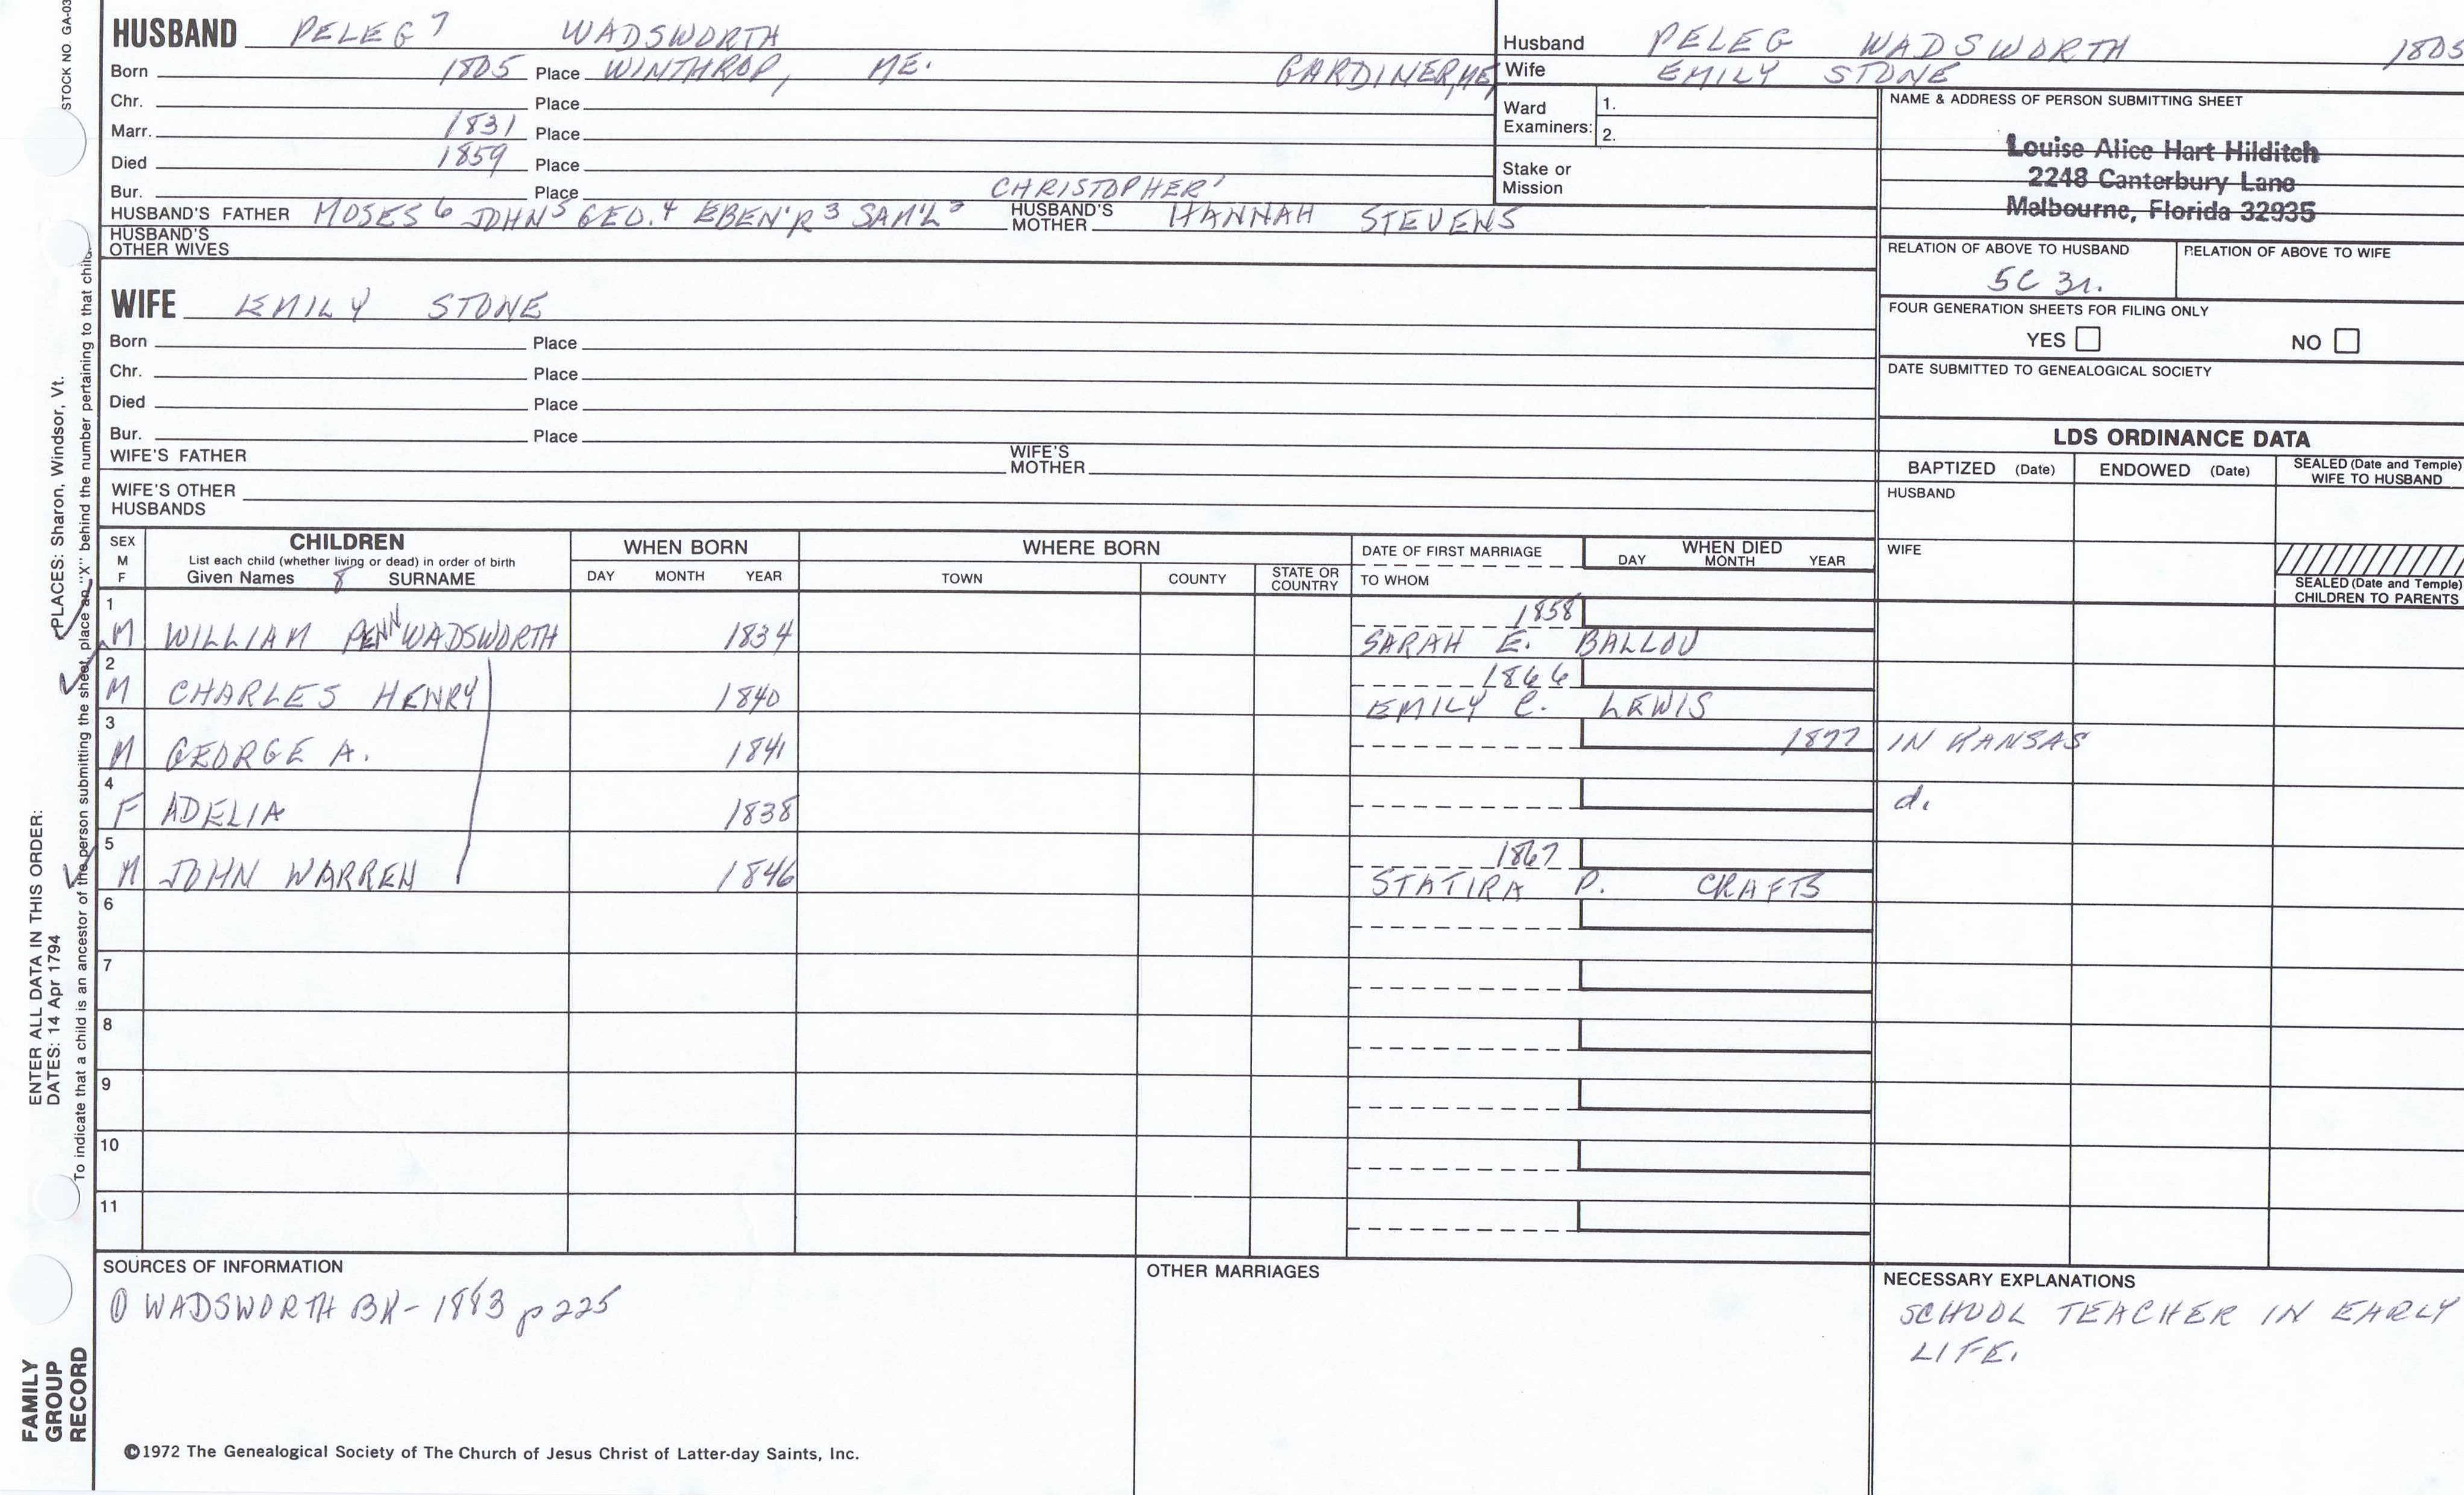 STOCK NO GA-03
HUSBAND PELEG 7 WADSWORTH
Born 1805 Place WINTHROP, ME. GARDINER, ME
Chr. Place
Marr. 1831 Place
Died 1859 Place
Bur. Place CHRISTOPHER 1
HUSBAND'S FATHER MOSES 6 JOHN 5 GEO. 4 EBEN'R 3 SAM'L HUSBAND'S MOTHER HANNAH STEVENS
HUSBAND'S OTHER WIVES
WIFE EMILY STONE
Born Place
Chr. Place
Died Place
Bur. Place
WIFE'S FATHER WIFE'S MOTHER
WIFE'S OTHER HUSBANDS
Husband PELEG WADSWORTH 1805
Wife EMILY STONE
Ward Examiners: 1.
2.
Stake or Mission
NAME & ADDRESS OF PERSON SUBMITTING SHEET
Louise Alice Hart Hilditch
2248 Canterbury Lane
Melbourne, Florida 32935
RELATION OF ABOVE TO HUSBAND RELATION OF ABOVE TO WIFE
5C 3r.
FOUR GENERATION SHEETS FOR FILING ONLY
YES NO
DATE SUBMITTED TO GENEALOGICAL SOCIETY
LDS ORDINANCE DATA
BAPTIZED (Date) ENDOWED (Date) SEALED (Date and Temple) WIFE TO HUSBAND
HUSBAND
WIFE
SEALED (Date and Temple) CHILDREN TO PARENTS
SEX M F
CHILDREN
List each child (whether living or dead) in order of birth
Given Names 8 SURNAME
WHEN BORN
DAY MONTH YEAR
WHERE BORN
TOWN COUNTY STATE OR COUNTRY
DATE OF FIRST MARRIAGE
TO WHOM
WHEN DIED
DAY MONTH YEAR
1 1858
M WILLIAM PENN WADSWORTH 1834 SARAH E. BALLOU
2 1866
M CHARLES HENRY 1840 EMILY C. LEWIS
3 1877 IN KANSAS
M GEORGE A. 1841
4 d.
F ADELIA 1838
5 1867
M JOHN WARREN 1846 STATIRA P. CRAFTS
6
7
8
9
10
11
SOURCES OF INFORMATION
① WADSWORTH BK - 1883 p 225
OTHER MARRIAGES
NECESSARY EXPLANATIONS
SCHOOL TEACHER IN EARLY
LIFE.
©1972 The Genealogical Society of The Church of Jesus Christ of Latter-day Saints, Inc.
FAMILY
GROUP
RECORD
ENTER ALL DATA IN THIS ORDER:
DATES: 14 Apr 1794 PLACES: Sharon, Windsor, Vt.
To indicate that a child is an ancestor of the person submitting the sheet, place an "X" behind the number pertaining to that child.